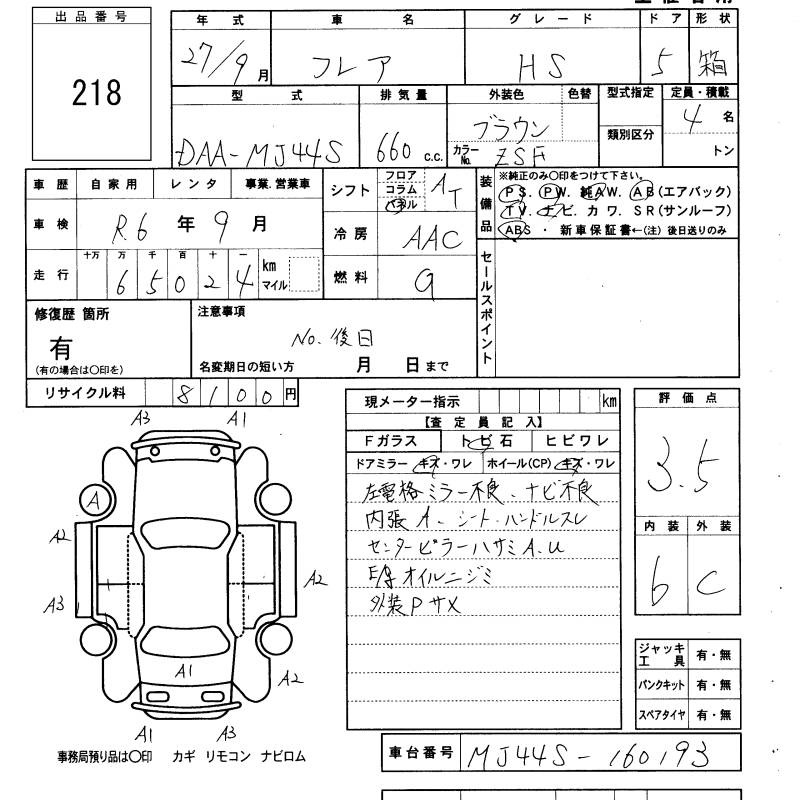 出品番号
218
年式 車名 グレード ドア 形状
27/9月 フレア HS 5 箱
型式 排気量 外装色 色替 型式指定 定員・積載
DAA-MJ44S 660 c.c. ブラウン 類別区分 4 名
カラーNo. ZSF トン
車歴 自家用 レンタ 事業.営業車
車検 R.6 年 9 月
走行 十万 万 千 百 十 一 km マイル
6 5 0 2 4
シフト フロア コラム パネル AT
冷房 AAC
燃料 G
装備品
※純正のみ○印をつけて下さい。
PS. PW. 純AW. AB(エアバック)
TV. ナビ. カワ. SR(サンルーフ)
ABS ・ 新車保証書←(注) 後日送りのみ
セールスポイント
修復歴 箇所
有
(有の場合は○印を)
注意事項
No. 後日
名変期日の短い方 月 日まで
リサイクル料 8100円
現メーター指示 km
【査定員記入】
Fガラス トビ石 ヒビワレ
ドアミラー キズ・ワレ ホイール(CP) キズ・ワレ
左電格ミラー不良、ナビ不良
内張A、シート・ハンドルスレ
センターピラーハサミA.U
E/Gオイルニジミ
外装PサX
評価点
3.5
内装 外装
6 C
ジャッキ工具 有・無
パンクキット 有・無
スペアタイヤ 有・無
A3 A1
A
A2
A2
A3
A1
A2
A1 A3
事務局預り品は○印 カギ リモコン ナビロム
車台番号 MJ44S-160193